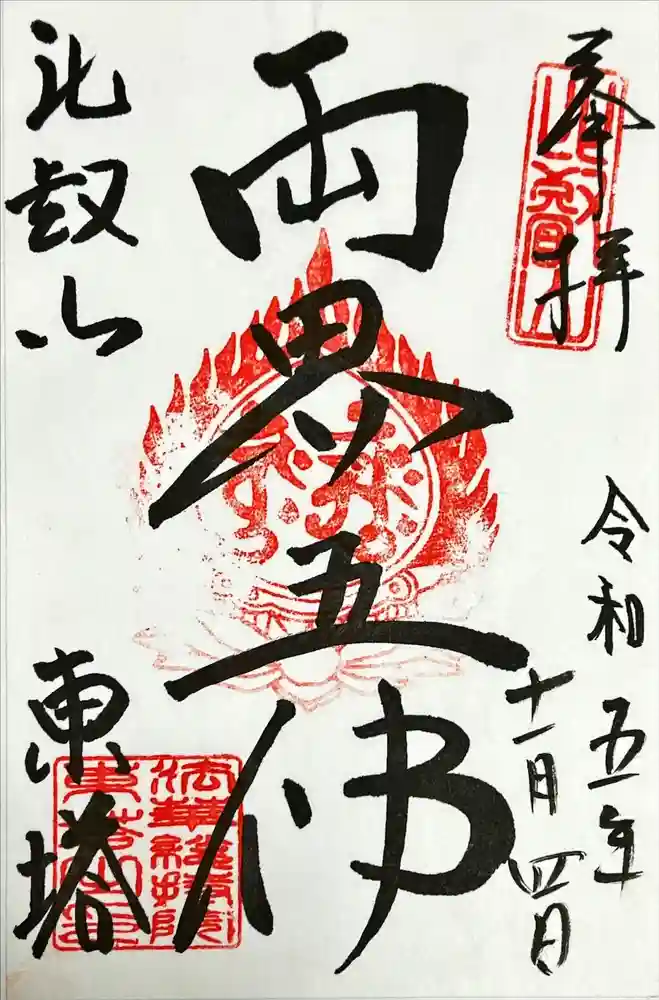 奉拝
令和五年
十一月四日
両界五佛
比叡山
東塔